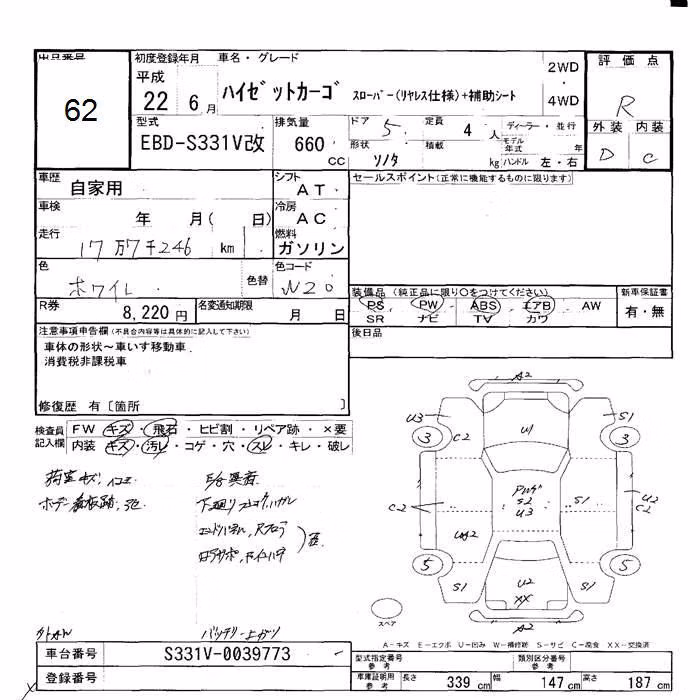 出品番号
62
初度登録年月
平成
22 6 月
車名・グレード
ハイゼットカーゴ スローパー(リヤレス仕様)+補助シート
2WD
・
4WD
評価点
R
外装 内装
D C
型式
EBD-S331V改
排気量
660
CC
ドア 5
定員 4 人
ディーラー・並行
形状 バン
積載 kg
モデル年式 年
ハンドル 左・右
車歴 自家用
シフト
AT
セールスポイント(正常に機能するものに限ります)
車検 年 月( 日)
冷房
AC
走行 17万7千246 km
燃料
ガソリン
色
ホワイト
色替
色コード
W20
装備品 (純正品に限り○をつけてください)
PS PW ABS エアB AW
SR ナビ TV カワ
新車保証書
有・無
R券 8,220円
名変通知期限 月 日
後日品
注意事項申告欄(不具合内容等は具体的に記入して下さい)
車体の形状~車いす移動車
消費税非課税車
修復歴 有〔箇所 〕
検査員記入欄
FW キズ・飛石・ヒビ割・リペア跡・×要
内装 キズ・汚レ・コゲ・穴・スレ・キレ・破レ
荷室キズ,
E/G異音
ボデー看板跡,
A2
U3
S1
3
C2
U1
3
PWｹﾞ
S2
U3
C2
S1
U2
C2
5
S1
U2
XX
S1
5
スペア
A2
バッテリー上がり
A-キズ E-エクボ U-凹み W-補修跡 S-サビ C-腐食 XX-交換済
車台番号 S331V-0039773
登録番号
型式指定番号
参考
類別区分番号
参考
車庫証明用
参考
長さ 339 cm 幅 147 cm 高さ 187 cm